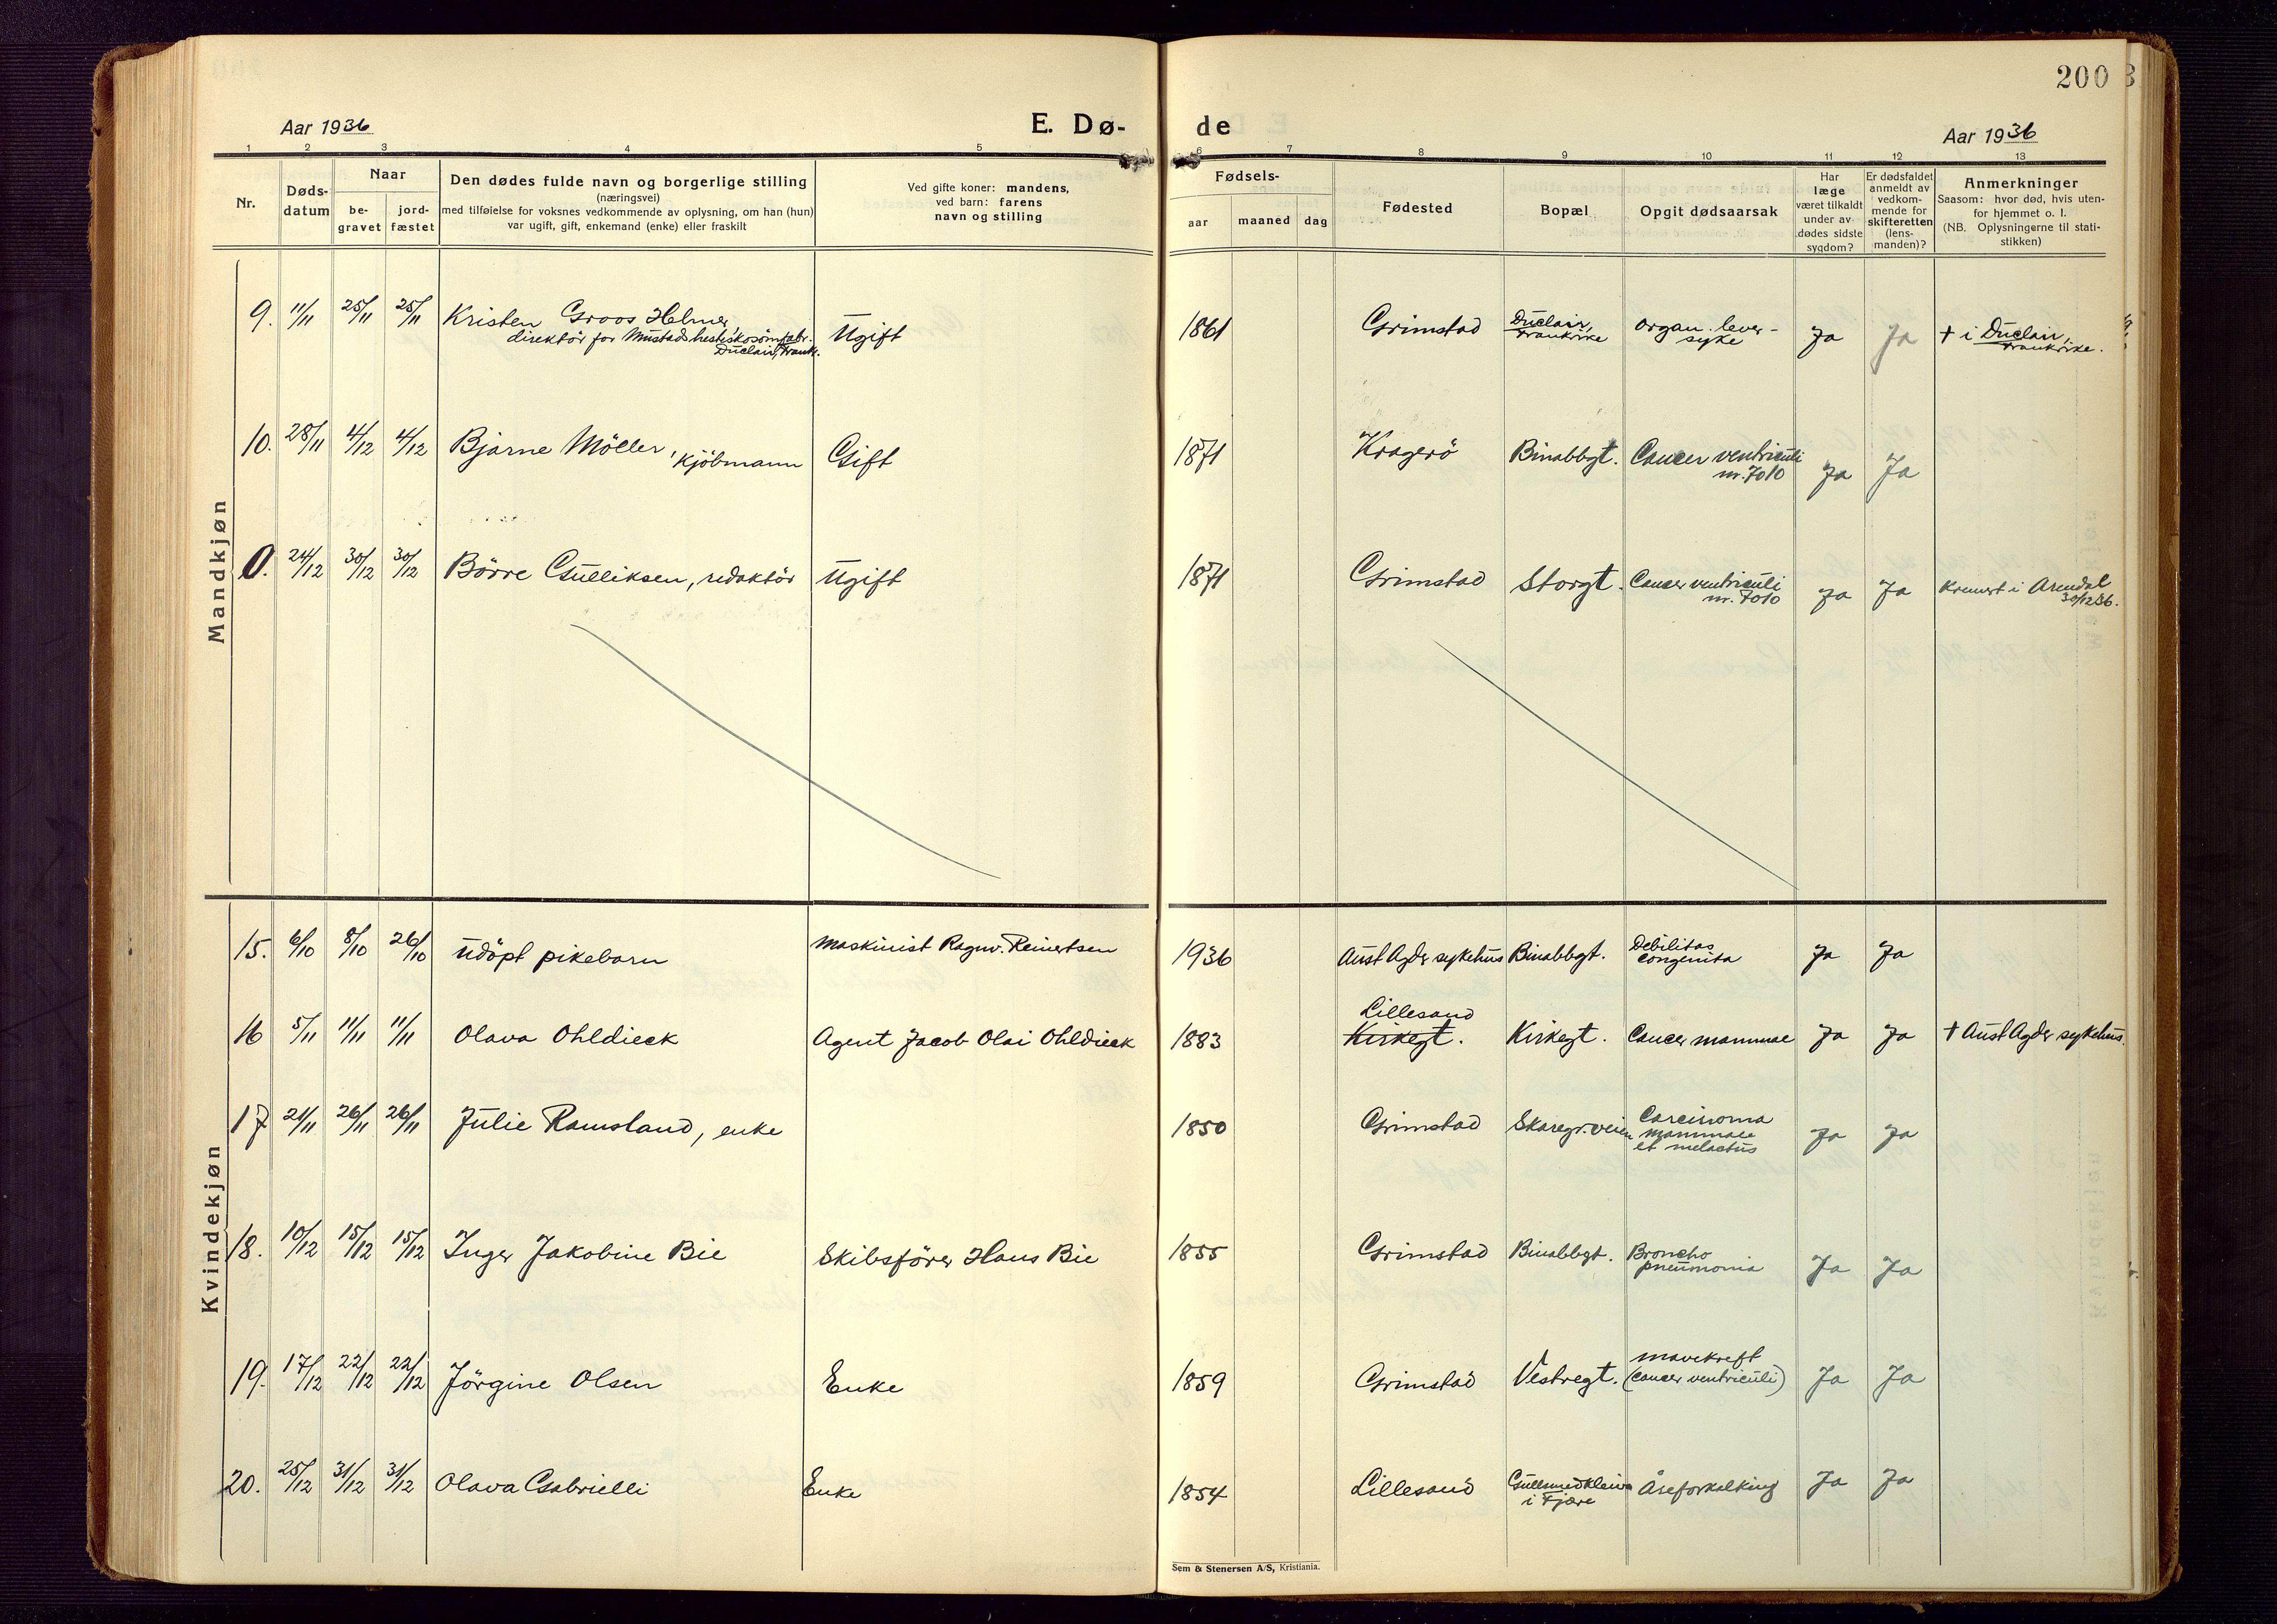 200
Aar 1936
E. Dø-
de
Aar 1936
1 2 3 4 5 6 7 8 9 10 11 12 13
Nr.
Døds-
datum
Naar
be-
gravet
jord-
fæstet
Den dødes fulde navn og borgerlige stilling
(næringsvei)
med tilføielse for voksnes vedkommende av oplysning, om han (hun)
var ugift, gift, enkemand (enke) eller fraskilt
Ved gifte koner: mandens,
ved barn: farens
navn og stilling
Fødsels-
aar maaned dag
Fødested
Bopæl
Opgit dødsaarsak
Har
læge
været tilkaldt
under av-
dødes sidste
sygdom?
Er dødsfaldet
anmeldt av
vedkom-
mende for
skifteretten
(lens-
manden)?
Anmerkninger
Saasom: hvor død, hvis uten-
for hjemmet o. l.
(NB. Oplysningerne til stati-
stikken)
Mandkjøn
9. 11/11 25/11 25/11 Kristen Groos Helmer,
direktör for Mustads hesteskosömfabr.
Duclair, Frank.
Ugift 1861 Grimstad Duclair,
Frankrike
organ. lever-
syke
Ja Ja † i Duclair,
Frankrike.
10. 28/11 4/12 4/12 Bjarne Möller, Kjöbmann Gift 1871 Kragerö Binabbgt. Cancer ventriculi
nr. 7010
Ja Ja
0. 24/12 30/12 30/12 Börre Gulliksen, redaktör Ugift 1871 Grimstad Storgt. Cancer ventriculi
nr. 7010
Ja Ja Kremert i Arendal
30/12 36.
Kvindekjøn
15. 6/10 8/10 26/10 Udöpt pikebarn Maskinist Ragnv. Reinertsen 1936 Aust Agder sykehus Binabbgt. Debilitas
congenita
Ja Ja
16 5/11 11/11 11/11 Olava Ohldieck Agent Jacob Olai Ohldieck 1883 Lillesand
Kirkegt. Kirkegt. Cancer mammae Ja Ja † Aust Agder sykehus.
17 21/11 26/11 26/11 Julie Ramsland, enke 1850 Grimstad Skaregr.veien Carcinoma
mammae
et
Ja Ja
18. 10/12 15/12 15/12 Inger Jakobine Bie Skibsförer Hans Bie 1855 Grimstad Binabbgt. Broncho
pneumonia
Ja Ja
19. 17/12 22/12 22/12 Jörgine Olsen Enke 1859 Grimstad Vestregt. mavekreft
(cancer ventriculi)
Ja Ja
20. 25/12 31/12 31/12 Olava Gabrielli Enke 1854 Lillesand Gullsmedkleiva
i Fjære
Åreforkalking Ja Ja
Sem & Stenersen A/S, Kristiania.